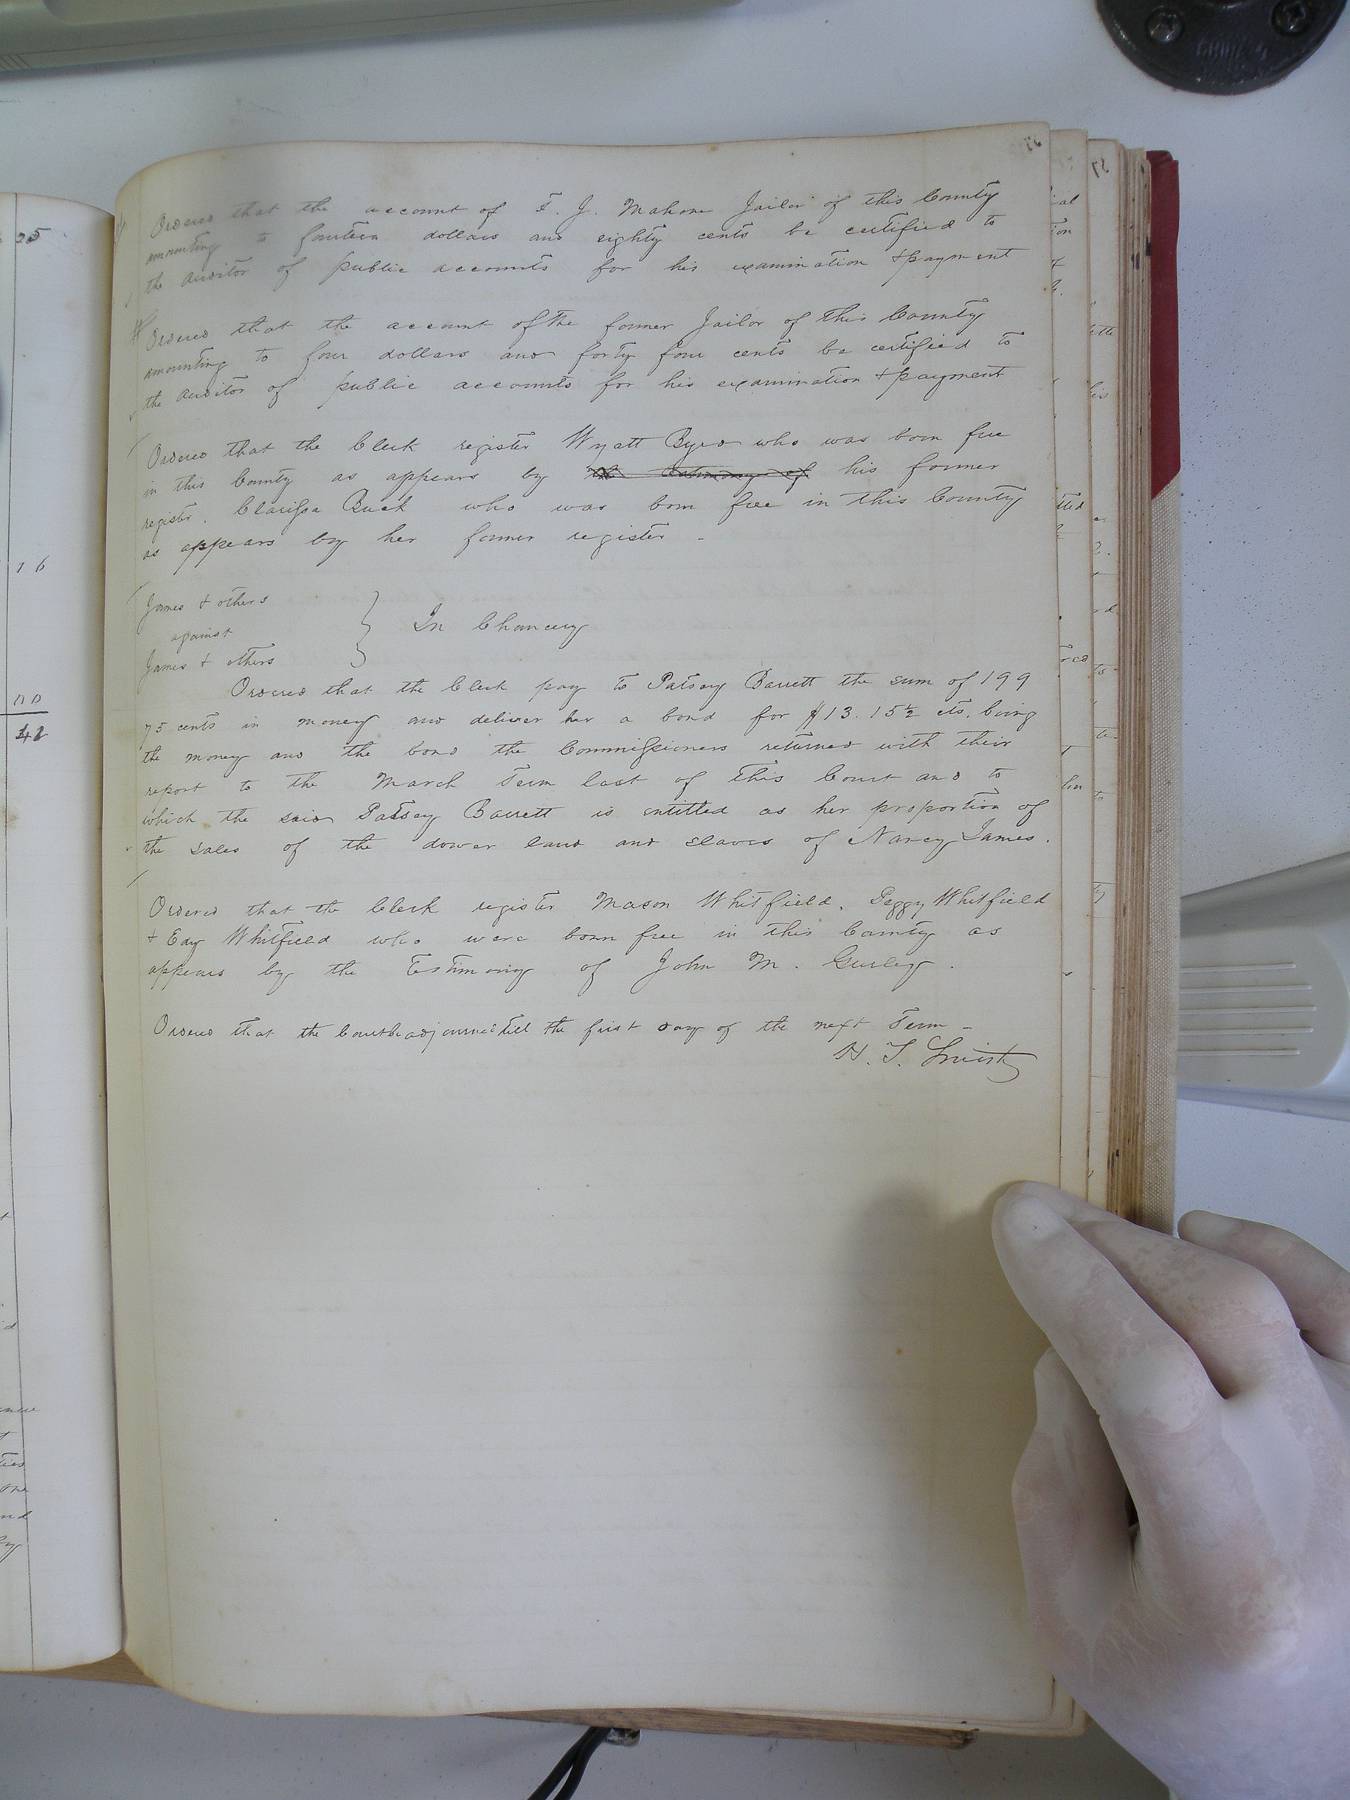 Ordered that the account of T. J. Mahone Jailor of this County
amounting to fourteen dollars and eighty cents be certified to
the auditor of public accounts for his examination & payment
Ordered that the account of the former Jailor of this County
amounting to four dollars and forty four cents be certified to
the auditor of public accounts for his examination & payment
Ordered that the Clerk register Wyatt Byrd who was born free
in this County as appears by the testimony of his former
register. Clarissa Buck who was born free in this County
as appears by her former register -
James & others
against
James & others
In Chancery
Ordered that the Clerk pay to Patsey Barrett the sum of 199
75 cents in money and deliver her a bond for $13.15½ cts. being
the money and the bond the Commissioners returned with their
report to the March Term last of this Court and to
which the said Patsey Barrett is entitled as her proportion of
the sales of the dower land and slaves of Nancy James.
Ordered that the Clerk register Mason Whitfield, Peggy Whitfield
& Edy Whitfield who were born free in this County as
appears by the testimony of John M. Gurley.
Ordered that the Court be adjourned till the first day of the next Term -
25
16
00
42
37